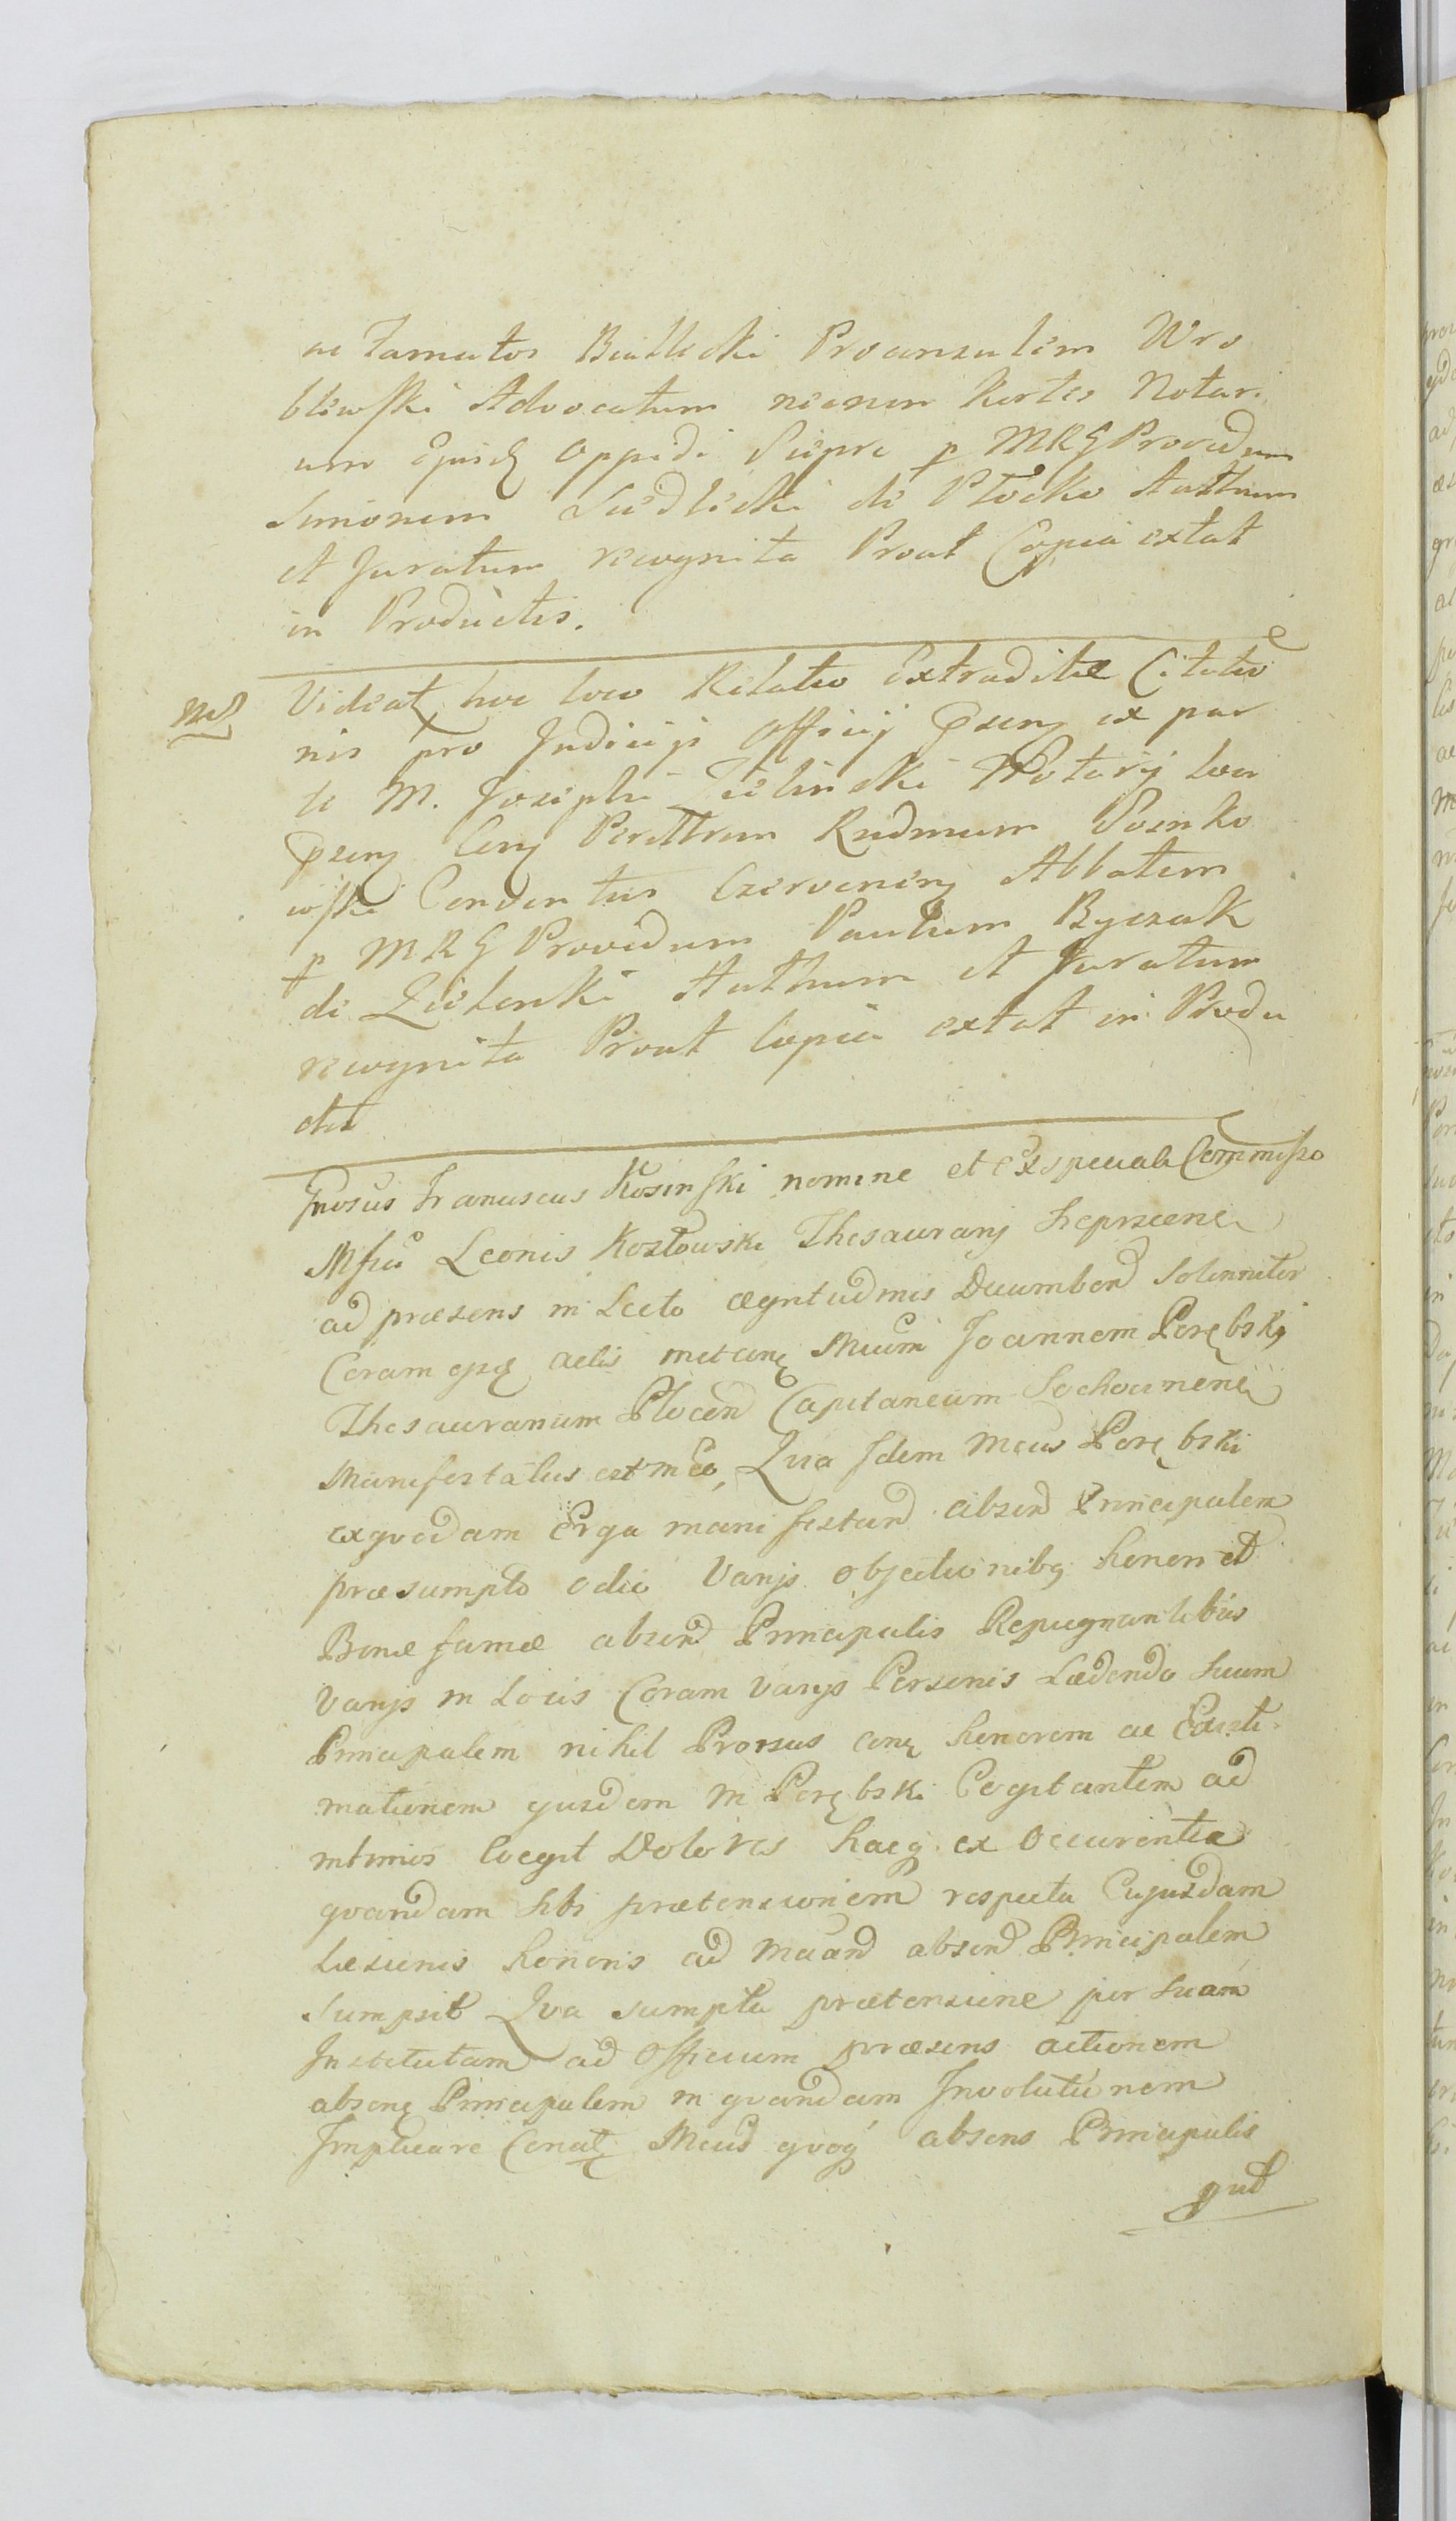 ac Famatos Białłecki Proconsulem Wro
blewski Advocatum necnon Kortes Notari
um Ejusdꝫ Oppidi Sieprc p MRG Providum
Simonem Siedlecki de Płocko Authum
et Juratum recognita Prout Copia extat
in Productis.
Md Videat hoc loco Relatio Extraditæ Citatio
nis pro Judicijs Officij Pseng ex par
te M. Josephi Zielinski Notarij loci
pseng Cong Perillrem Rndmum Sosnko
wski Conventus Czervineng Abbatem
p MRG Providum Paulum Byczak
de Zielonki Authum et Juratum
recognita Prout Copia extat in Produ
ctis
Gnosus Franciscus Kosinski nomine et ex speciali Commisso
Mfci Leonis Kozłowski Thesaurarij Sieprscens
ad præsens in Lecto ægritudinis Decumben Solenniter
Coram ejsꝗ actis met conꝫ Mcum Joannem Porębski
Thesaurarium Plocen Capitaneum Sochocinens
Manifestatus est in Eo, Qvia Idem Mcus Porębski
ex qvodam Erga manifestan absen Principalem
præsumpto odio Varijs objectionibꝫ honori et
Bonæ famæ absen Principalis Repugnantibus
Varijs in Locis Coram varijs Personis Lædendo Suum
Principalem nihil Prorsus conꝫ honorem ac Existi
mationem ejusdem M Porębski Cogitantem ad
intimos Coegit Dolores hacꝗ ex Occurentia
qvandam Sibi prætensionem respectu Cujusdam
Læsionis honoris ad Mean absen Principalem
Sumpsit Qva sumpta prætensione per Suam
Institutam ad Officium præsens actionem
absenꝫ Principalem in qvandam Involutionem
Implicare Conat Mcus qvoqꝫ absens Principalis
qui